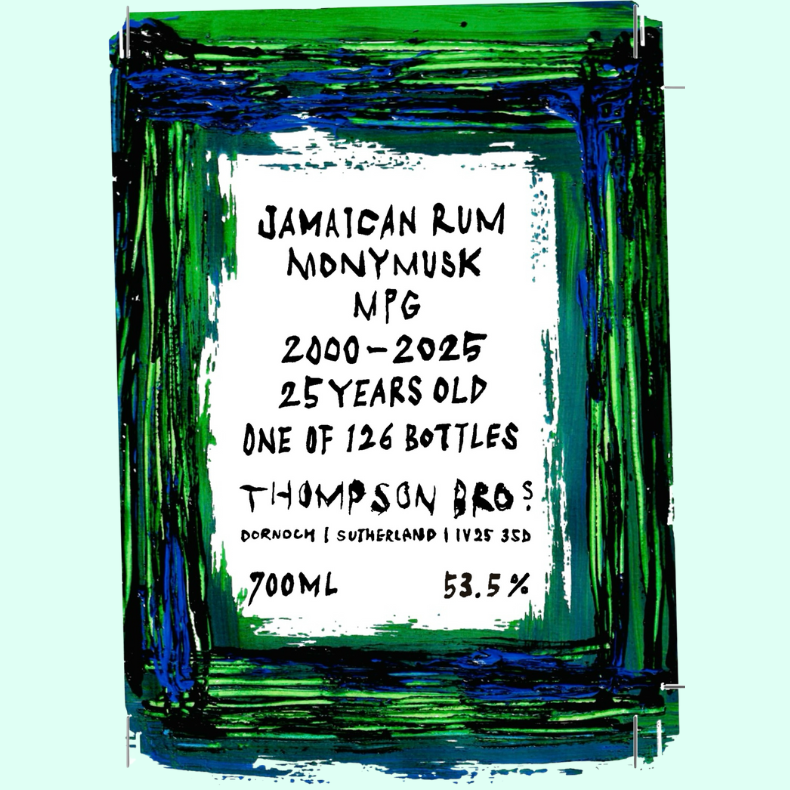 JAMAICAN RUM
MONYMUSK
MPG
2000-2025
25 YEARS OLD
ONE OF 126 BOTTLES
THOMPSON BROS.
DORNOCH | SUTHERLAND | IV25 3SD
700ML 53.5%